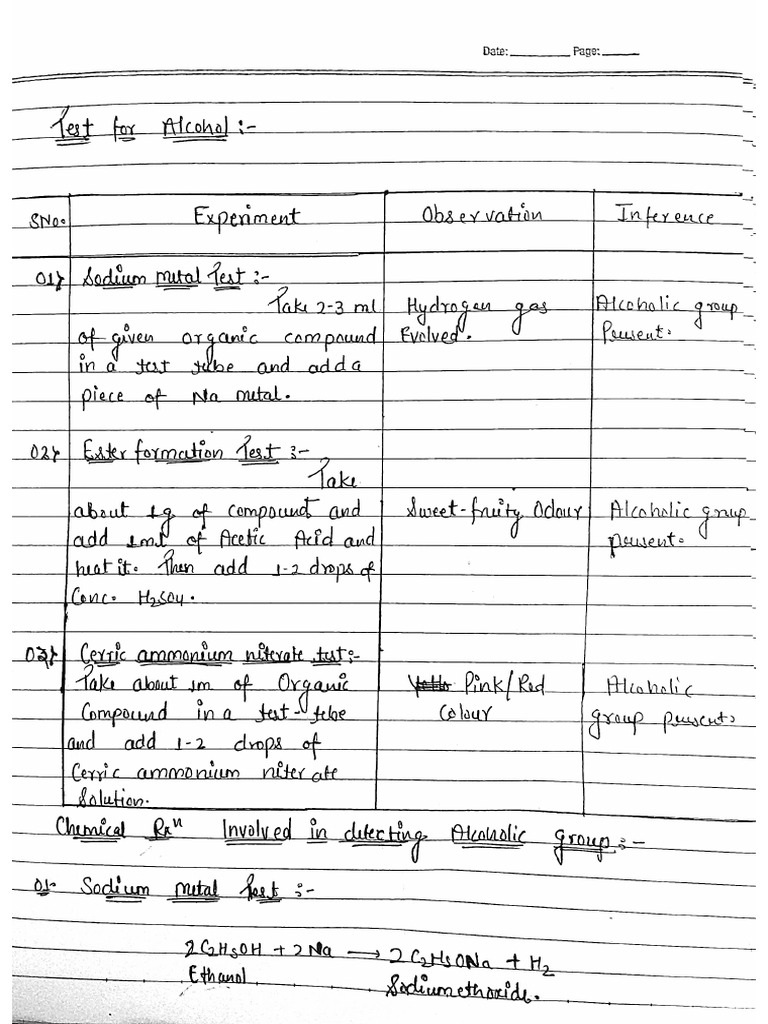 Date: Page:
Test for Alcohol :-
SNo. Experiment Observation Inference
01} Sodium Metal Test :-
Take 2-3 ml Hydrogen gas Alcoholic group
of given organic compound Evolved. Present.
in a test tube and add a
piece of Na metal.
02} Ester formation Test :-
Take
about 1g of compound and Sweet-fruity Odour Alcoholic group
add 1ml of Acetic Acid and present.
heat it. Then add 1-2 drops of
Conc. H2SO4.
03} Cerric ammonium niterate test :-
Take about 1m of Organic Pink/Red Alcoholic
Compound in a test-tebe Colour group present.
and add 1-2 drops of
Cerric ammonium niterate
Solution.
Chemical Rxn Involved in detecting Alcoholic group :-
01- Sodium metal Test :-
2C2H5OH + 2Na → 2C2H5ONa + H2
Ethanol Sodiumethoxide.